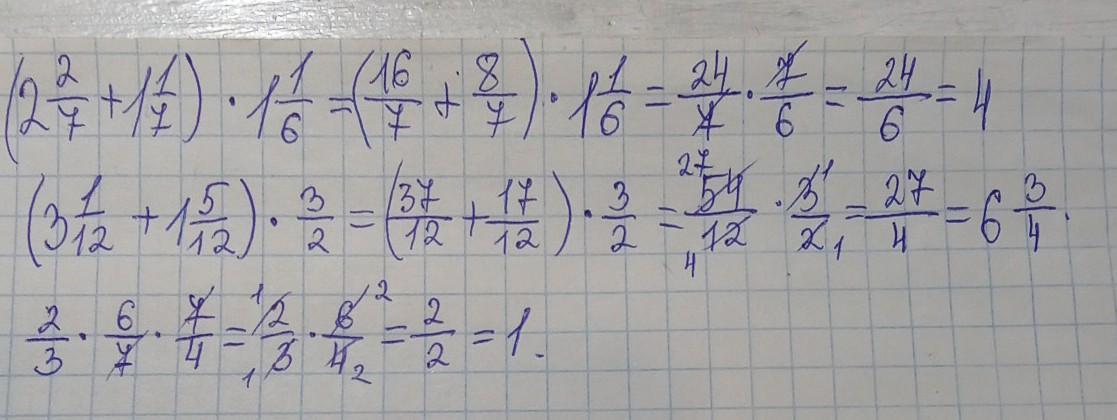 (2 2/7 + 1 1/7) · 1 1/6 = (16/7 + 8/7) · 1 1/6 = 24/7 · 7/6 = 24/6 = 4
(3 1/12 + 1 5/12) · 3/2 = (37/12 + 17/12) · 3/2 = 27 54/12 4 · 3/2 1 1 = 27/4 = 6 3/4.
2/3 · 6/7 · 7/4 = 1 2/3 1 · 6/4 2 2 = 2/2 = 1.